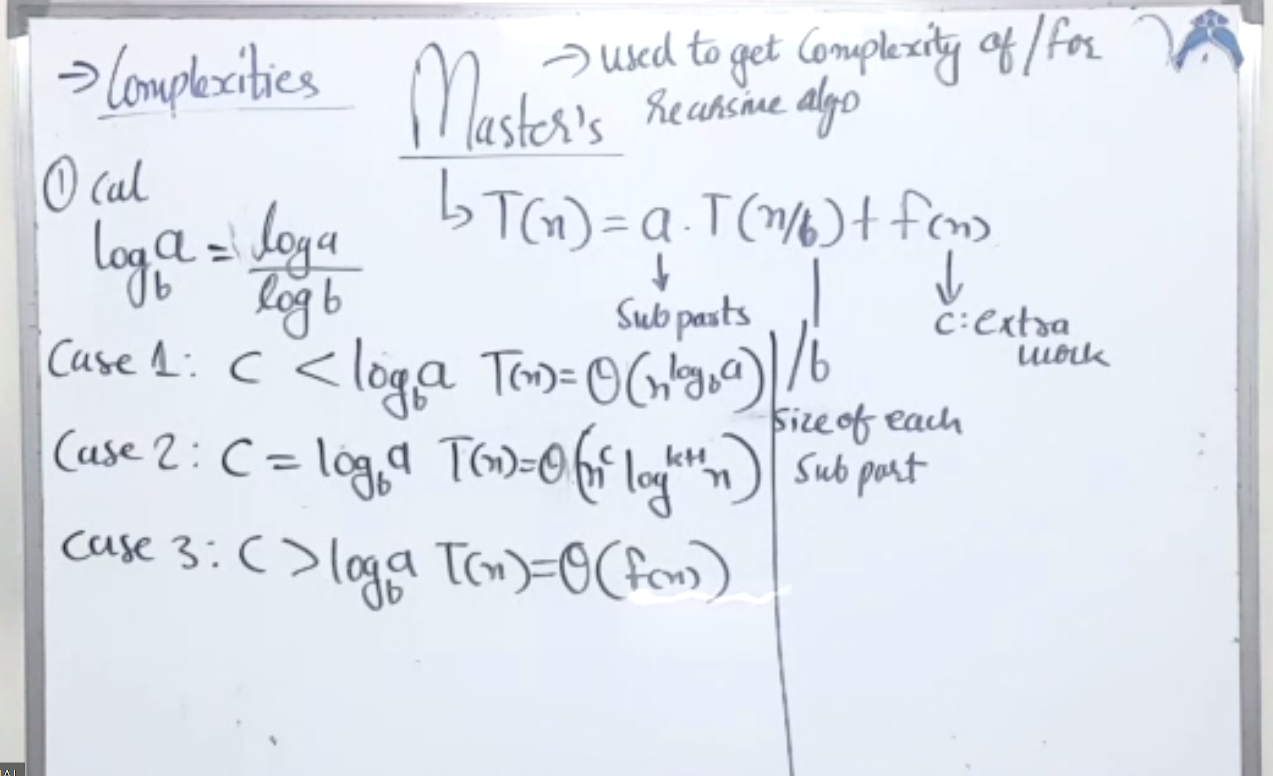 → Complexities
Master's
→ used to get Complexity of / for
recursive algo
① Cal
log_b a = log a / log b
↳ T(n) = a . T(n/b) + f(n)
↓
Sub parts
|
/b
size of each
Sub part
↓
c: extra
work
Case 1: C < log_b a T(n) = Θ(n^(log_b a))
Case 2: C = log_b a T(n) = Θ(n^c log^(k+1) n)
Case 3: C > log_b a T(n) = Θ(f(n))